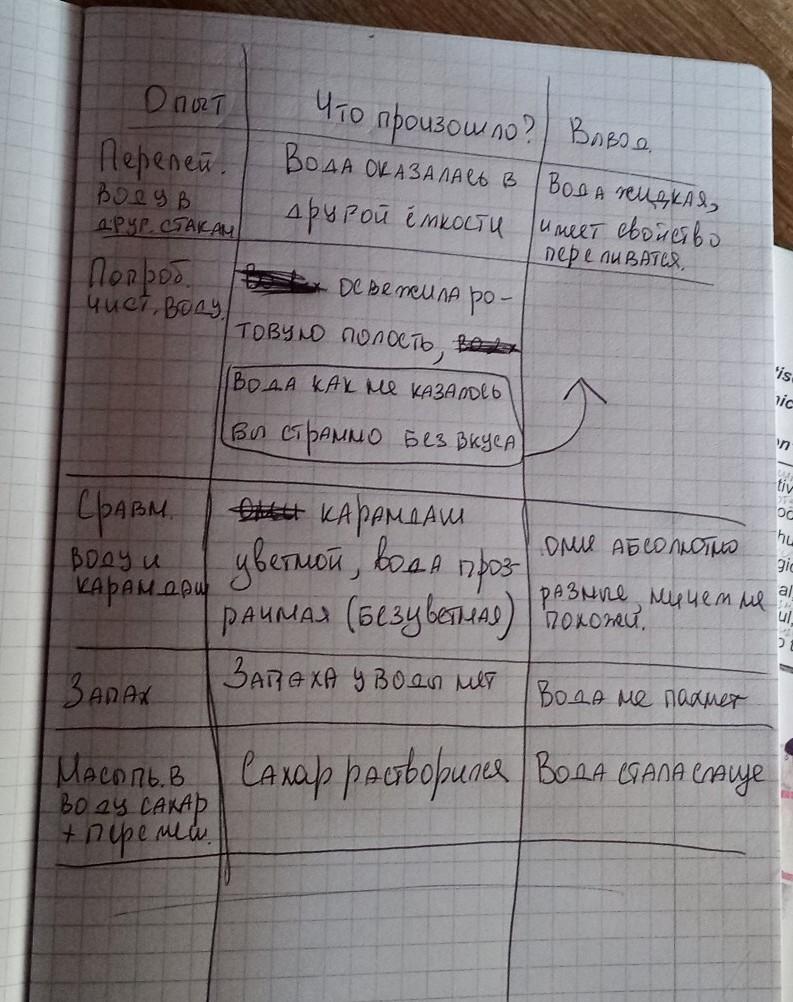 Опыт
Что произошло?
Вывод.
Перелей.
воду в
друг. стакан
Вода оказалась в
другой ёмкости
Вода жидкая,
имеет свойство
переливатся.
Попроб.
чист. воду.
освежила ро-
товую полость,
Вода как не казалось
бы странно без вкуса
Сравн.
воду и
карандаш
карандаш
цветной, вода проз-
рачная (безцветная)
они абсолютно
разные, ничем не
похожи.
Запах
Запаха у воды нет
Вода не пахнет
Насыпь. в
воду сахар
+ перемеш.
Сахар растворился
Вода стала слаще